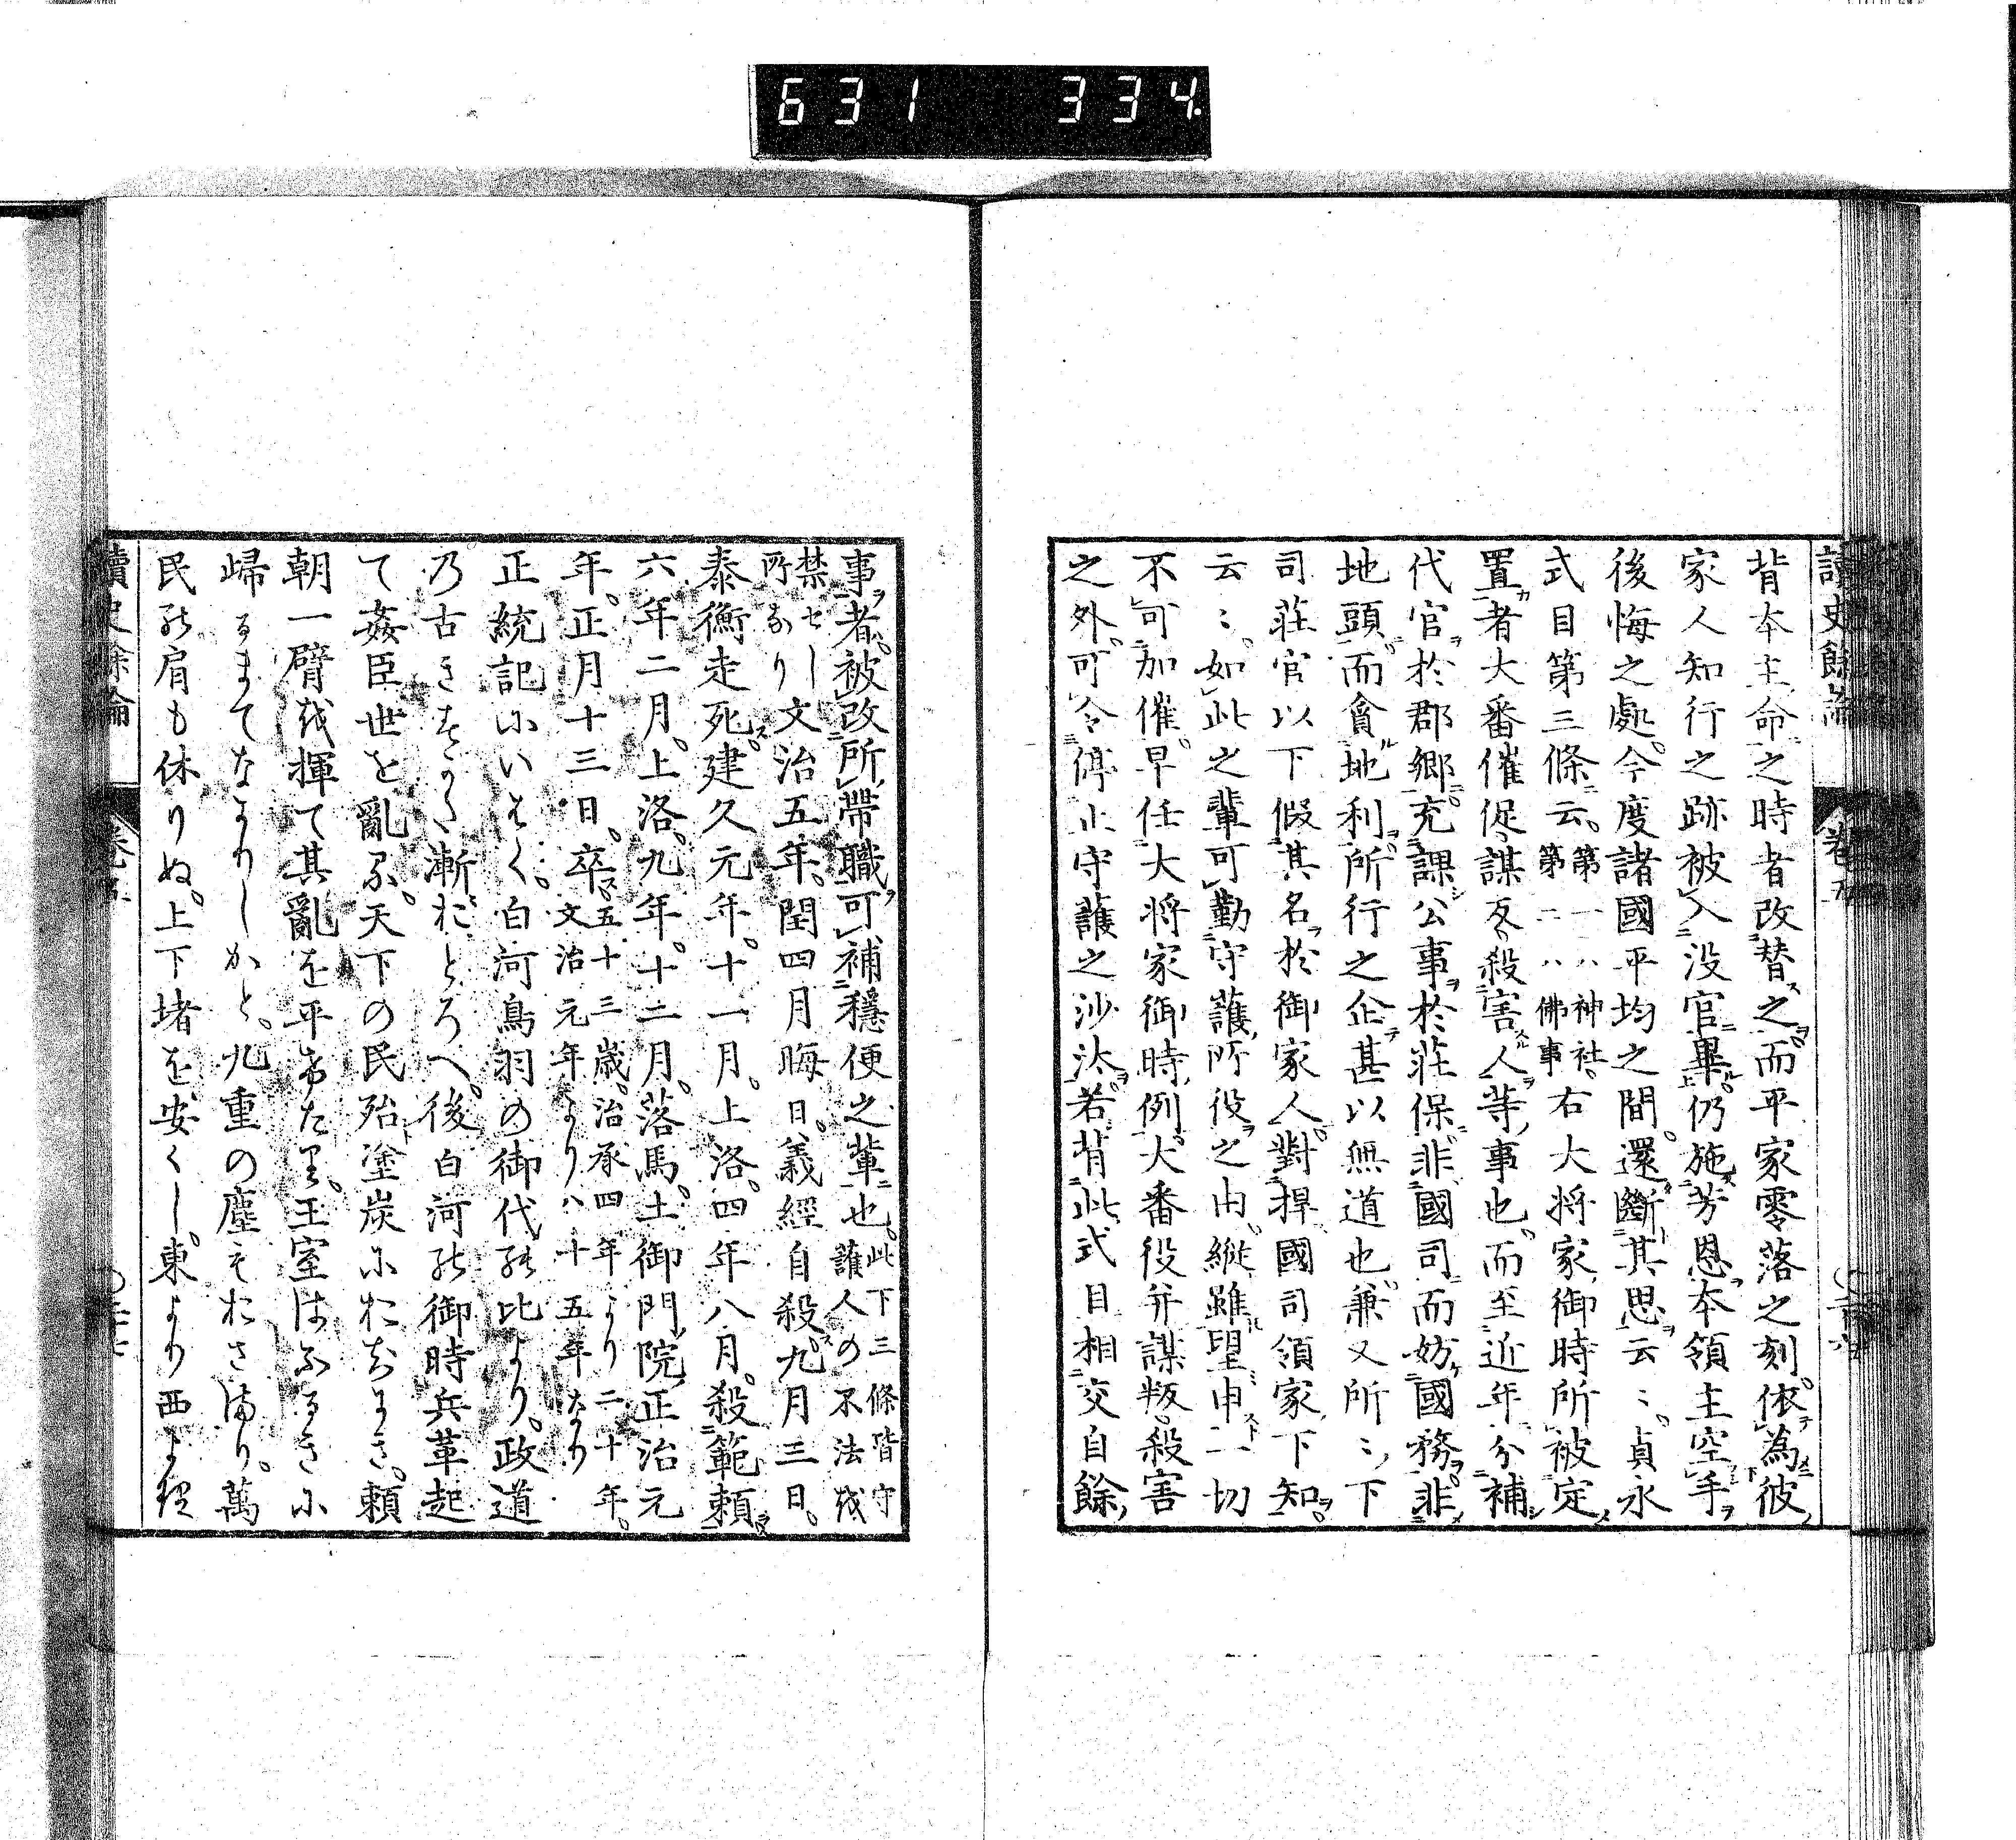 631 334
讀史餘論
背本主命之時者改替之而平家零落之刻依為彼
家人知行之跡被入没官畢仍施芳恩本領主空手
後悔之處今度諸國平均之間還斷其思云〻貞永
式目第三條云第一ハ神社第二ハ佛事右大将家御時所被定
置者大番催促謀叛殺害人等事也而至近年分補
代官於郡郷充課公事於莊保非國司而妨國務非
地頭而貪地利所行之企甚以無道也兼又所〻下
司莊官以下假其名於御家人對捍國司領家下知
云〻如此之輩可勤守護所役之由縱雖望申一切
不可加催早任大将家御時例大番役并謀叛殺害
之外可令停止守護之沙汰若背此式目相交自餘
事者被改所帶職可補穩便之輩也此下三條皆守護人の不法を
禁せし所なり文治五年閏四月晦日義經自殺九月三日
泰衡走死建久元年十一月上洛四年八月殺範頼
六年二月上洛九年十二月落馬土御門院正治元
年正月十三日卒五十三歳治承四年より二十年文治元年より八十五年なり
正統記にいはく白河鳥羽の御代の比より政道
の古きすかた漸おとろへ後白河の御時兵革起
て姦臣世を亂る天下の民殆塗炭におちにき頼
朝一臂を揮て其亂を平けたり王室はふるきに
歸るまてなかりしかと九重の塵もおさまり萬
民の肩も休りぬ上下堵を安くし東より西より
讀史餘論